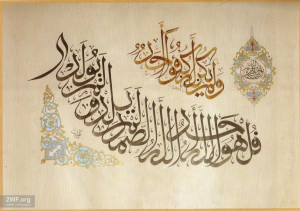 قل هو الله أحد الله الصمد لم يلد ولم يولد
ولم يكن له كفوا أحد